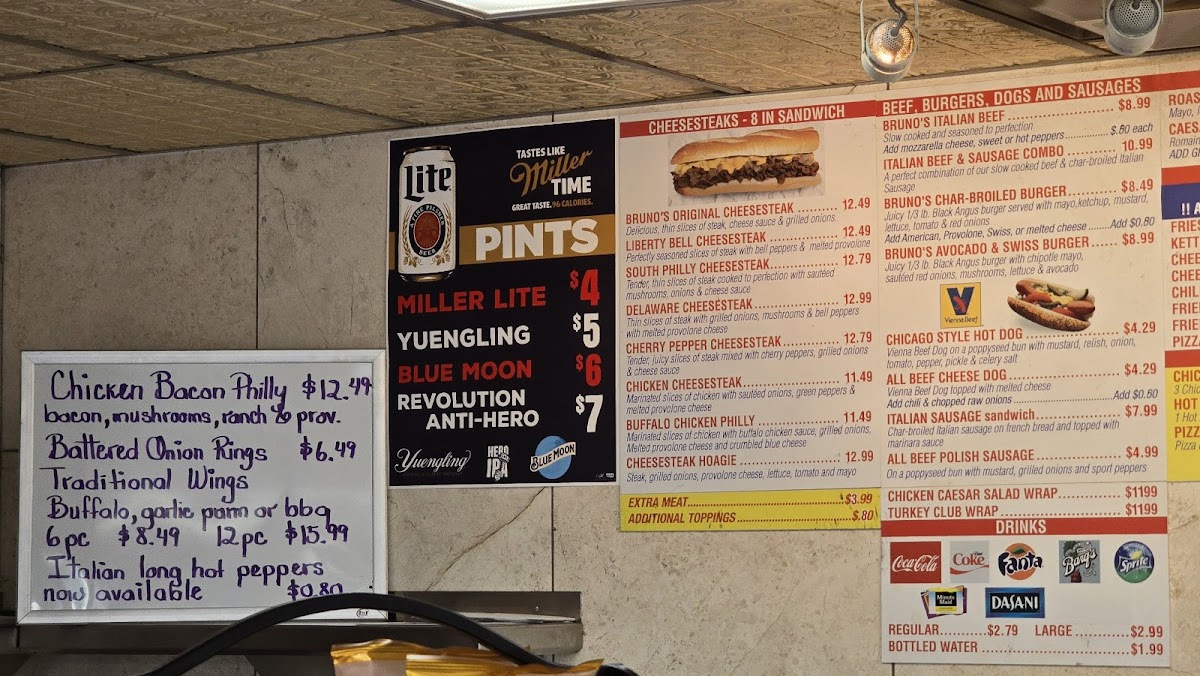 Chicken Bacon Philly $12.49
bacon, mushrooms, ranch & prov.
Battered Onion Rings $6.49
Traditional Wings
Buffalo, garlic parm or bbq
6pc $8.49 12pc $15.99
Italian long hot peppers
now available $0.80
Lite
TASTES LIKE
Miller
TIME
GREAT TASTE. 96 CALORIES.
PINTS
MILLER LITE $4
YUENGLING $5
BLUE MOON $6
REVOLUTION
ANTI-HERO $7
Yuengling
HERO
IPA
BLUE MOON
CHEESESTEAKS - 8 IN SANDWICH
BRUNO'S ORIGINAL CHEESESTEAK .......... 12.49
Delicious, thin slices of steak, cheese sauce & grilled onions.
LIBERTY BELL CHEESESTEAK .......... 12.49
Perfectly seasoned slices of steak with bell peppers & melted provolone
SOUTH PHILLY CHEESESTEAK .......... 12.79
Tender, thin slices of steak cooked to perfection with sautéed
mushrooms, onions & cheese sauce
DELAWARE CHEESESTEAK .......... 12.99
Thin slices of steak with grilled onions, mushrooms & bell peppers
with melted provolone cheese
CHERRY PEPPER CHEESESTEAK .......... 12.79
Tender, juicy slices of steak mixed with cherry peppers, grilled onions
& cheese sauce
CHICKEN CHEESESTEAK .......... 11.49
Marinated slices of chicken with sautéed onions, green peppers &
melted provolone cheese
BUFFALO CHICKEN PHILLY .......... 11.49
Marinated slices of chicken with buffalo chicken sauce, grilled onions,
Melted provolone cheese and crumbled blue cheese
CHEESESTEAK HOAGIE .......... 12.99
Steak, grilled onions, provolone cheese, lettuce, tomato and mayo
EXTRA MEAT .......... $3.99
ADDITIONAL TOPPINGS .......... $.80
BEEF, BURGERS, DOGS AND SAUSAGES
BRUNO'S ITALIAN BEEF .......... $8.99
Slow cooked and seasoned to perfection
Add mozzarella cheese, sweet or hot peppers .......... $.80 each
ITALIAN BEEF & SAUSAGE COMBO .......... 10.99
A perfect combination of our slow cooked beef & char-broiled Italian
Sausage
BRUNO'S CHAR-BROILED BURGER .......... $8.49
Juicy 1/3 lb. Black Angus burger served with mayo,ketchup, mustard,
lettuce, tomato & red onions
Add American, Provolone, Swiss, or melted cheese .......... Add $0.80
BRUNO'S AVOCADO & SWISS BURGER .......... $8.99
Juicy 1/3 lb. Black Angus burger with chipotle mayo,
sautéed red onions, mushrooms, lettuce & avocado
V
Vienna Beef
CHICAGO STYLE HOT DOG .......... $4.29
Vienna Beef Dog on a poppyseed bun with mustard, relish, onion,
tomato, pepper, pickle & celery salt
ALL BEEF CHEESE DOG .......... $4.29
Vienna Beef Dog topped with melted cheese
Add chili & chopped raw onions .......... Add $0.50
ITALIAN SAUSAGE sandwich .......... $7.99
Char-broiled Italian sausage on french bread and topped with
marinara sauce
ALL BEEF POLISH SAUSAGE .......... $4.99
On a poppyseed bun with mustard, grilled onions and sport peppers
CHICKEN CAESAR SALAD WRAP .......... $1199
TURKEY CLUB WRAP .......... $1199
DRINKS
Coca-Cola
Coke
Fanta
Barq's
Sprite
Minute Maid
DASANI
REGULAR .......... $2.79 LARGE .......... $2.99
BOTTLED WATER .......... $1.99
ROAS
Mayo, l
CAES
Romain
ADD G
!! A
FRIES
KETT
CHEE
CHEE
CHIL
FRIE
FRIE
PIZZ
CHIC
3 Chic
HOT
1 Hot
PIZZ
Pizza